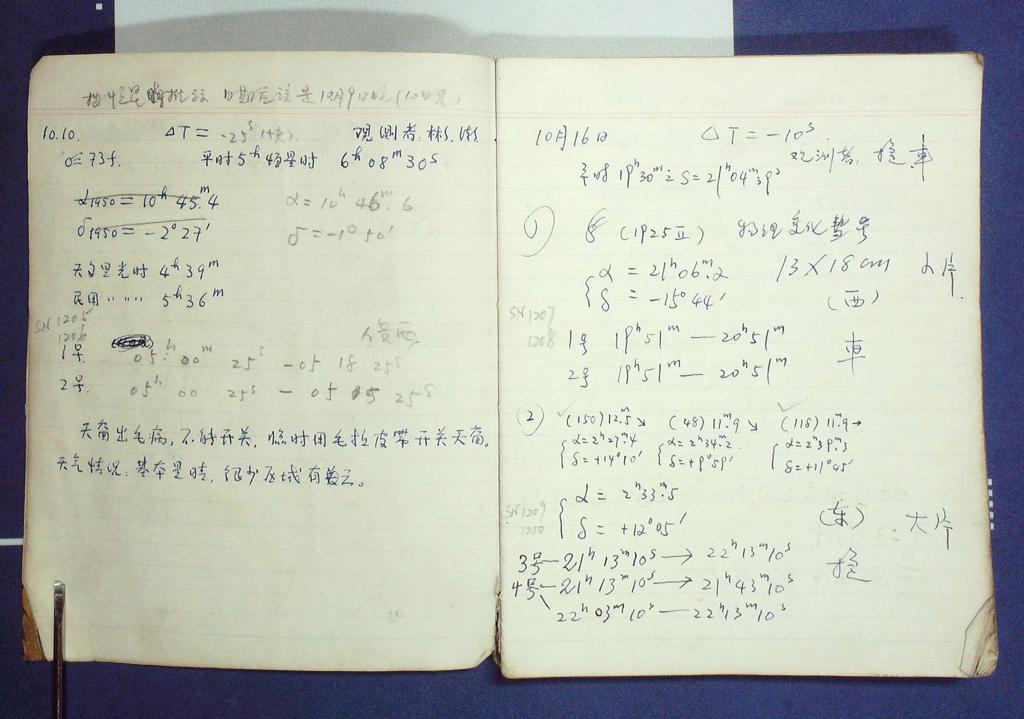 按恒星时推算 日期应该是10月9日晚(10日晨)
10.10. ΔT = -25ˢ 观测者:
平时5ʰ 恒星时 6ʰ08ᵐ30ˢ
α1950 = 10ʰ 45ᵐ.4 α = 10ʰ 46ᵐ.6
δ1950 = -2°27′ δ = -1°50′
天文晨光时 4ʰ39ᵐ
民用 〃 〃 〃 5ʰ36ᵐ
SN 1205
1206
1号. 05ʰ 00ᵐ 25ˢ - 05 18 25ˢ
2号. 05ʰ 00 25ˢ - 05 05 25ˢ
天窗出毛病,不能开关,临时用手拉皮带开关天窗。
天气情况:基本是晴,很少区域有散云。
10月16日 ΔT = -10ˢ
观测者:
平时19ʰ30ᵐ = S = 21ʰ04ᵐ39ˢ
① (1925Ⅱ) 物理变化
α = 21ʰ06ᵐ.2 13×18cm 大片.
δ = -15°44′ (西)
SN 1207
1208
1号 19ʰ51ᵐ — 20ʰ51ᵐ 車
2号 19ʰ51ᵐ — 20ʰ51ᵐ
② (150) 12ᵐ.5↘ (48) 11ᵐ.9↘ (118) 11ᵐ.9→
α=2ʰ27ᵐ.4 α=2ʰ34ᵐ.2 α=2ʰ39ᵐ.3
δ=+14°10′ δ=+9°59′ δ=+11°45′
SN 1209
1210
α = 2ʰ33ᵐ.5
δ = +12°05′ (东) 大片
3号—21ʰ13ᵐ10ˢ → 22ʰ13ᵐ10ˢ
4号—21ʰ13ᵐ10ˢ → 21ʰ43ᵐ10ˢ
22ʰ03ᵐ10ˢ — 22ʰ13ᵐ10ˢ